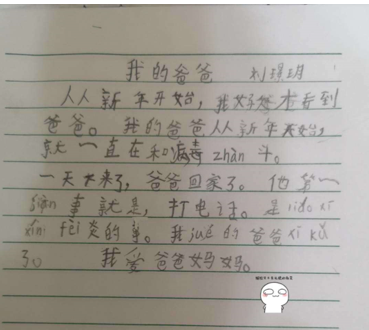 我的爸爸 刘璟玥
人人新年开始，我好想看到
爸爸。我的爸爸人人新年开始，
就一直在和病毒zhàn斗。
一天大来了，爸爸回家了。他第一
jiàn事就是，打电话。是liáo xī
xīn fèi炎的事。我jué的爸爸xī kǔ
了。我爱爸爸妈妈。